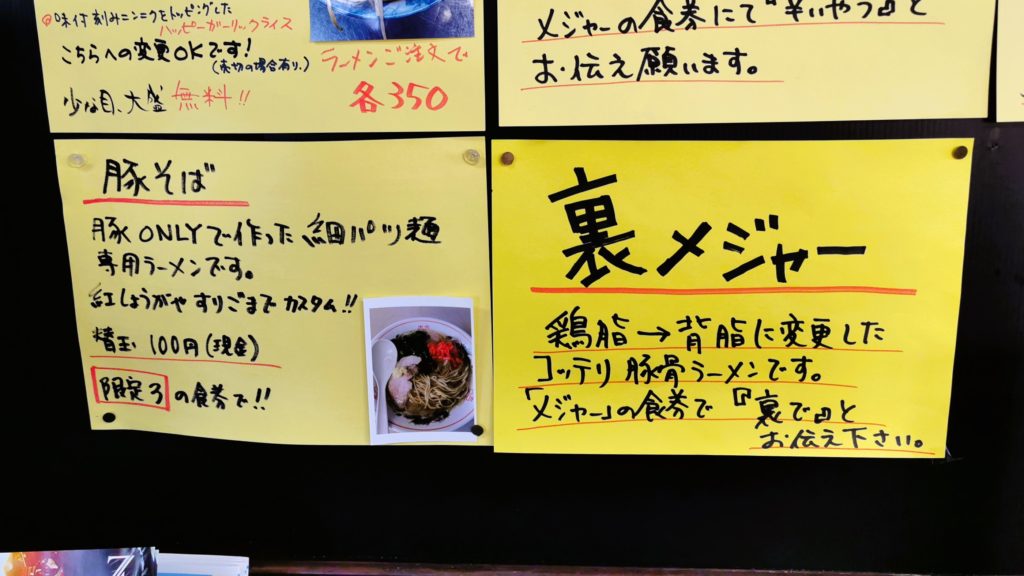 味付刻みニンニクをトッピングした
ハッピーガーリックライス
こちらへの変更OKです!
(売切の場合有り、)
ラーメンご注文で
少な目、大盛 無料!!
各350
メジャーの食券にて『辛いやつ』と
お伝え願います。
豚そば
豚ONLYで作った細パツ麺
専用ラーメンです。
紅しょうがやすりごまでカスタム!!
替玉 100円(現金)
限定3の食券で!!
裏メジャー
鶏脂→背脂に変更した
コッテリ豚骨ラーメンです。
「メジャー」の食券で『裏で』と
お伝え下さい。
Z